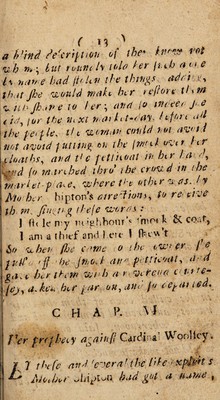 ( 13 )
a blind description of they know not
wh m; but roundly told her such a one
by name had stolen the things, adding,
that she would make her restore them
with shame to her; and so indeed she
did, for the next market-day, before all
the people, the woman could not avoid
not avoid putting on the smock over her
cloaths, and the petticoat in her hand,
and so marched thro' the crowd in the
market-place, where the other was, by
Mother hipton's directions, to receive
them, singing these words:
I stole my neighbour's smock & coat,
I am a thief and here I shew't
So when she came to the owner she
pull'd off the smock and petticoat, and
gave her them with a
asked her pardon, and so departed.
CHAP. VI.
Her prophecy against Cardinal Woolsey.
BY these and several the like exploits
Mother Shipton had got a name,